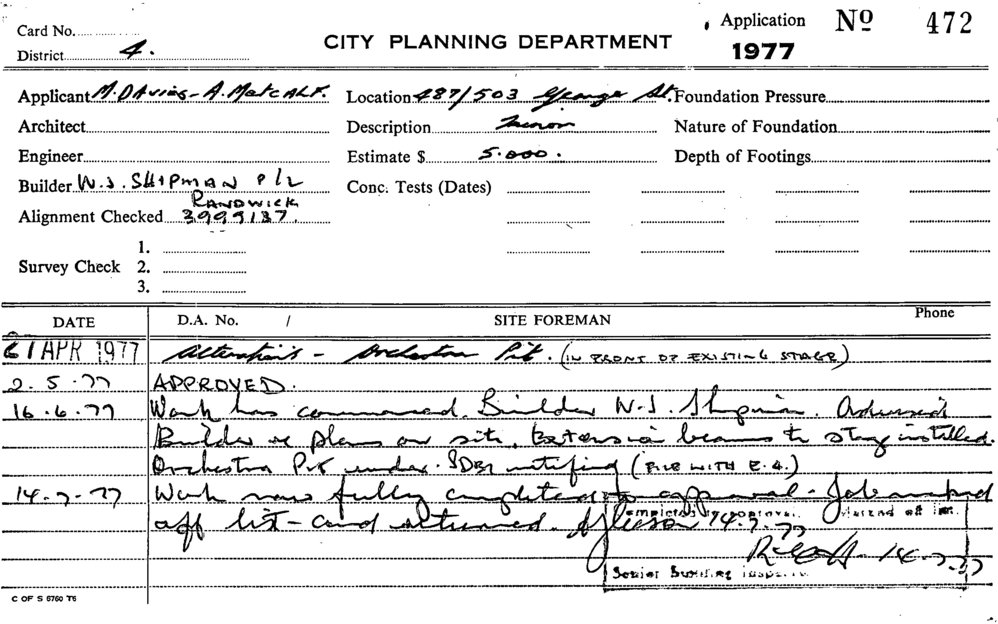 Card No.
District 4.
CITY PLANNING DEPARTMENT
Application No 472
1977
Applicant M. DAVIES - A. METCALF. Location 487/503 George St. Foundation Pressure
Architect Description Minor Nature of Foundation
Engineer Estimate $ 5.000. Depth of Footings
Builder W.J. SHIPMAN P/L Conc. Tests (Dates)
RANDWICK
Alignment Checked 3999137.
1.
Survey Check 2.
3.
DATE D.A. No. / SITE FOREMAN Phone
21 APR 1977 Alterations - Orchestra Pit. (IN FRONT OF EXISTING STAGE)
2.5.77 APPROVED.
16.6.77 Work has commenced. Builder W.J. Shipman. Advised
Builder re plans on site. Extension beams to stage installed.
Orchestra Pit under notifying (FILE WITH E.A.)
14.7.77 Work now fully completed to approval - Job marked
off list - card returned. 14.7.77
Completed to approval. Marked off list.
14.7.77
Senior Building Inspector
C OF S 6760 T6